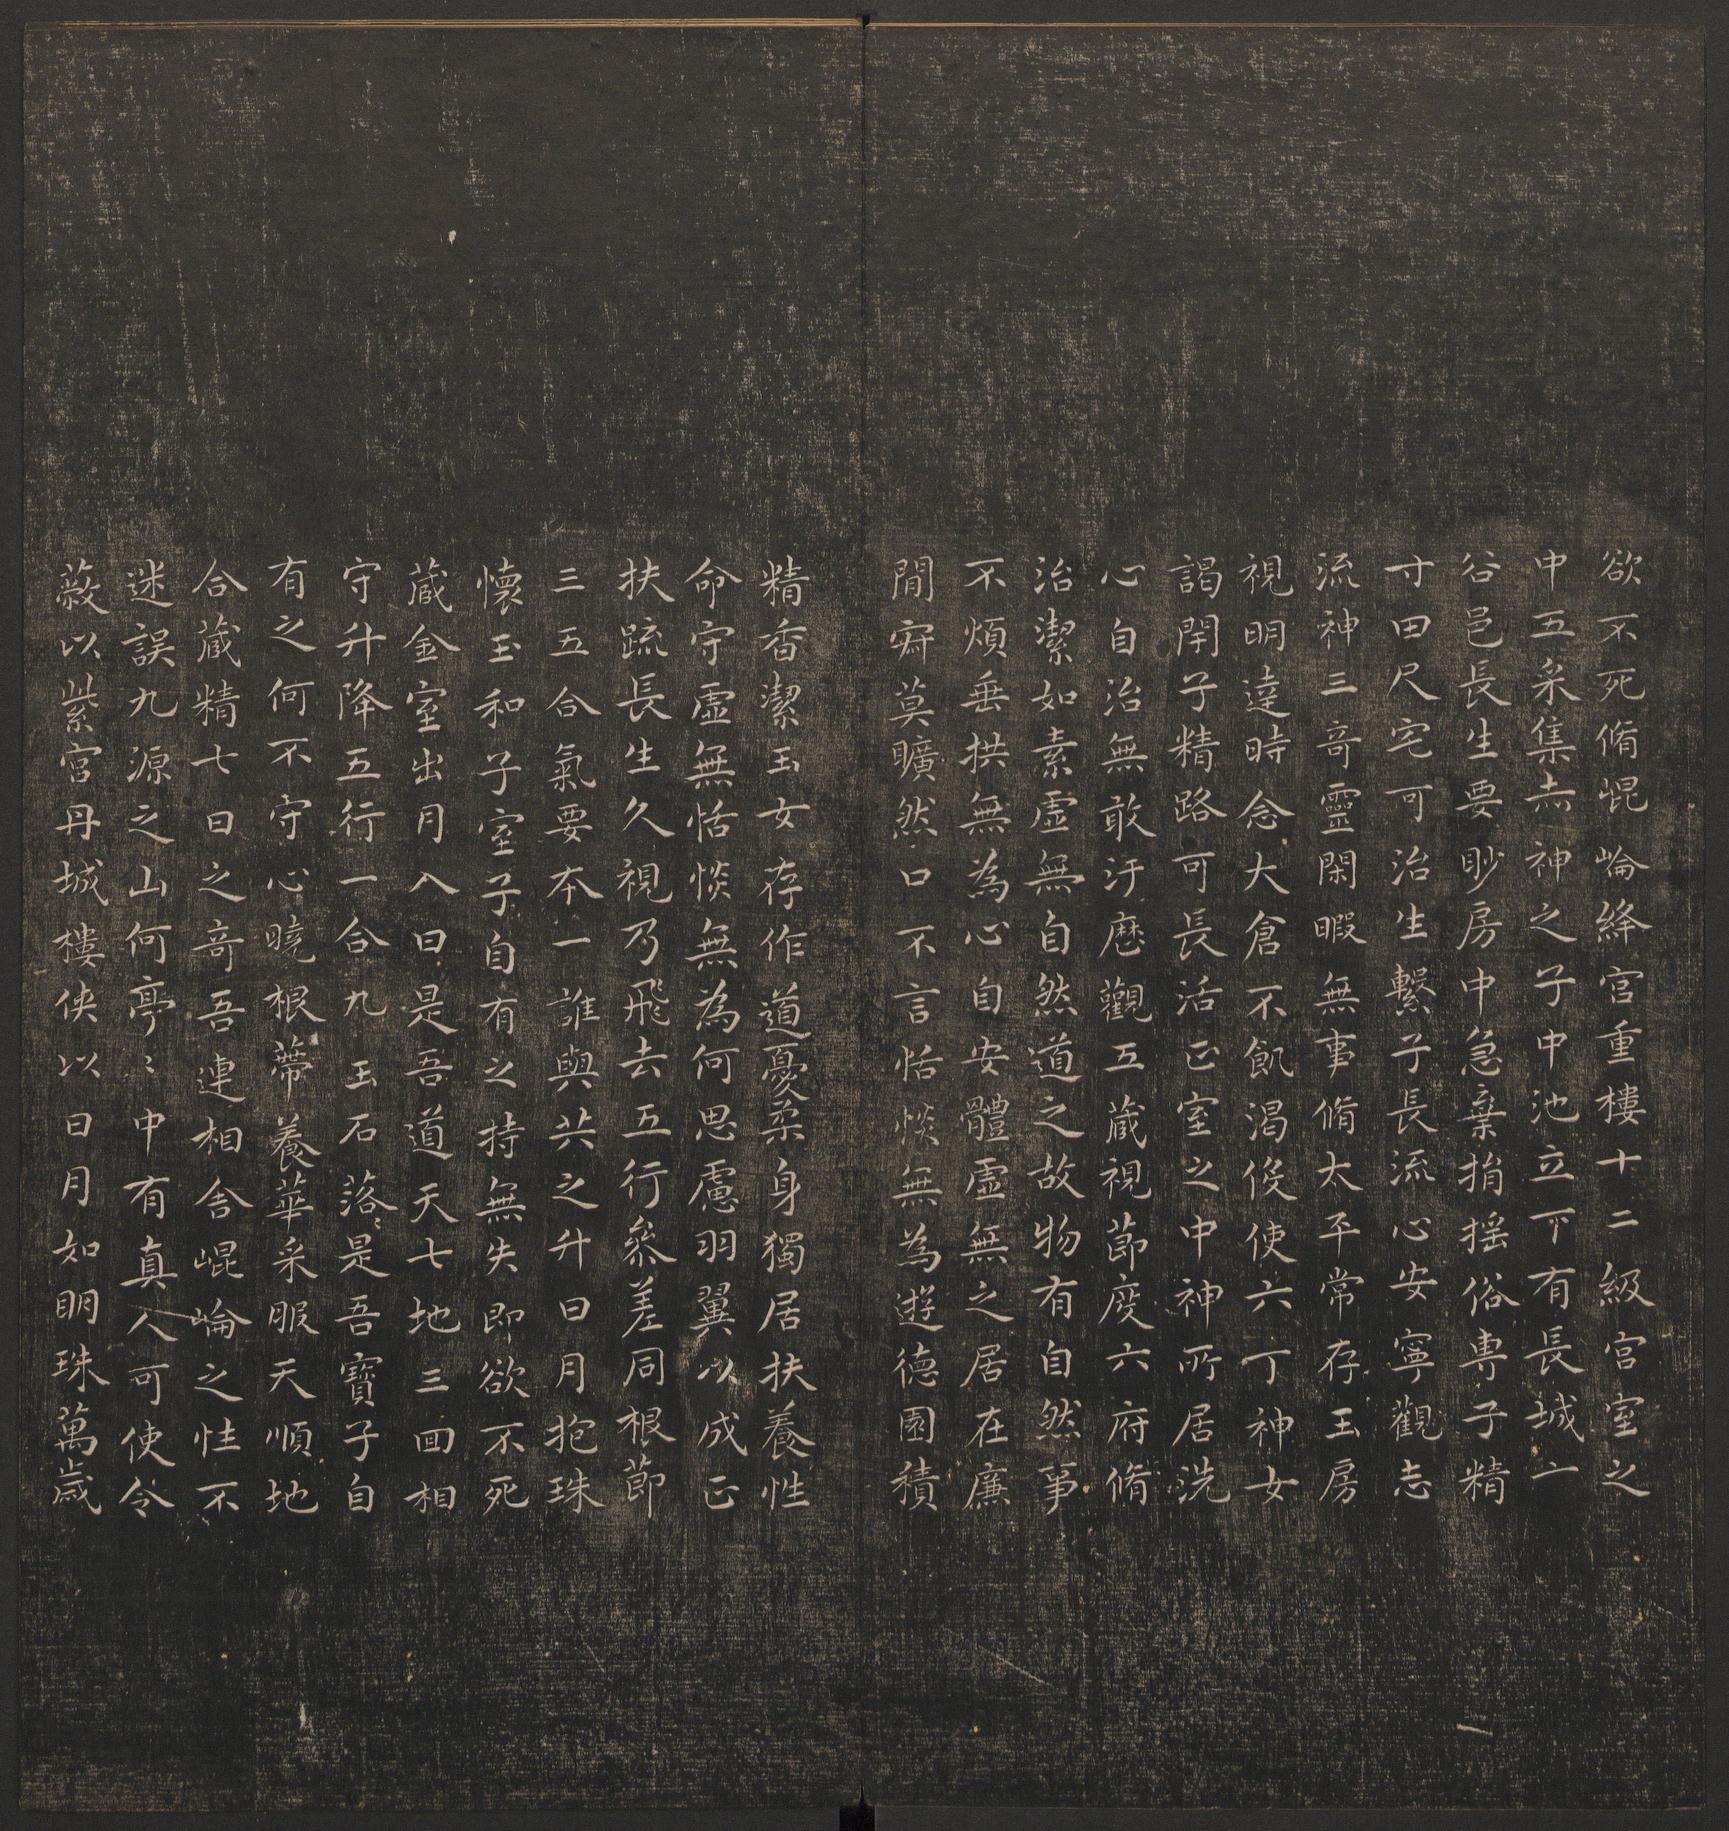 欲不死脩崐崘絳宮重樓十二級宮室之
中五采集赤神之子中池立下有長城玄
谷邑長生要眇房中急棄捐揺俗專子精
寸田尺宅可治生繫子長流心安寧觀志
流神三奇靈閑暇無事脩太平常存玉房
視明達時念大倉不飢渴伇使六丁神女
謁閇子精路可長活正室之中神所居洗
心自治無敢汙歷觀五藏視節度六府脩
治潔如素虛無自然道之故物有自然事
不煩垂拱無為心自安體虛無之居在廉
間寂莫曠然口不言恬惔無為遊德園積
精香潔玉女存作道憂柔身獨居扶養性
命守虛無恬惔無為何思慮羽翼以成正
扶疏長生久視乃飛去五行參差同根節
三五合氣要本一誰與共之升日月抱珠
懷玉和子室子自有之持無失即欲不死
藏金室出月入日是吾道天七地三回相
守升降五行一合九玉石落落是吾寶子自
有之何不守心曉根蔕養華采服天順地
合藏精七日之奇吾連相舍崐崘之性不
迷誤九源之山何亭〻中有真人可使令
蔽以紫宮丹城樓俠以日月如明珠萬歲